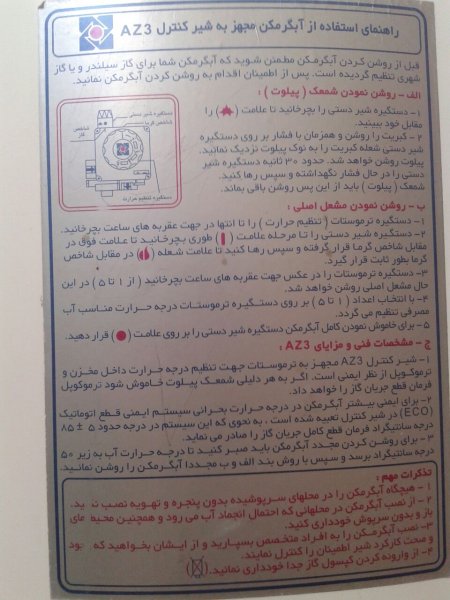 راهنمای استفاده از آبگرمکن مجهز به شیر کنترل AZ3
قبل از روشن کردن آبگرمکن مطمئن شوید که آبگرمکن شما برای گاز سیلندر و یا گاز
شهری تنظیم گردیده است. پس از اطمینان اقدام به روشن کردن آبگرمکن نمائید.
الف - روشن نمودن شمعک ( پیلوت ) :
۱- دستگیره شیر دستی را بچرخانید تا علامت ( ) را
مقابل خود ببینید.
۲- کبریت را روشن و همزمان با فشار بر روی دستگیره
شیر دستی شعله کبریت را به نوک پیلوت نزدیک نمائید.
پیلوت روشن خواهد شد. حدود ۳۰ ثانیه دستگیره شیر
دستی را در حال فشار نگهداشته و سپس رها کنید.
شمعک ( پیلوت ) باید از این پس روشن باقی بماند.
دستگیره شیر دستی
شاخص
گاز
دستگیره تنظیم حرارت
ب - روشن نمودن مشعل اصلی :
۱- دستگیره ترموستات ( تنظیم حرارت ) را تا انتها در جهت عقربه های ساعت بچرخانید.
۲- دستگیره شیر دستی را تا مرحله علامت ( ) طوری بچرخانید تا علامت فوق در
مقابل شاخص گرما قرار گرفته و سپس رها کنید تا علامت شعله ( ) در مقابل شاخص
گرما بطور ثابت قرار گیرد.
۳- دستگیره ترموستات را در عکس جهت عقربه های ساعت بچرخانید ( از ۱ تا ۵ ) در این
حال مشعل اصلی روشن خواهد شد.
۴- با انتخاب اعداد ( ۱ تا ۵ ) بر روی دستگیره ترموستات درجه حرارت مناسب آب
مصرفی تنظیم می گردد.
۵- برای خاموش نمودن کامل آبگرمکن دستگیره شیر دستی را بر روی علامت ( ● ) قرار دهید.
ج - مشخصات فنی و مزایای AZ3 :
۱- شیر کنترل AZ3 مجهز به ترموستات جهت تنظیم درجه حرارت داخل مخزن و
ترموکوپل از نظر ایمنی است. اگر به هر دلیلی شمعک پیلوت خاموش شود ترموکوپل
فرمان قطع جریان گاز را خواهد داد.
۲- برای ایمنی بیشتر آبگرمکن در درجه حرارت بحرانی سیستم ایمنی قطع اتوماتیک
(ECO) در شیر کنترل تعبیه شده است ، به نحوی که این سیستم در درجه حدود ۵ ± ۸۵
درجه سانتیگراد فرمان قطع کامل جریان گاز را صادر می نماید.
۳- برای روشن کردن مجدد آبگرمکن باید صبر کنید تا درجه حرارت آب به زیر ۵۰
درجه سانتیگراد برسد و سپس با روش بند الف و ب مجددا آبگرمکن را روشن نمائید.
تذکرات مهم :
۱- هیچگاه آبگرمکن را در محلهای سرپوشیده بدون پنجره و تهویه نصب
۲- از نصب آبگرمکن در محلهائی که احتمال انجماد آب می رود و همچنین
باز و بدون سرپوش خودداری کنید.
۳- نصب آبگرمکن را به افراد متخصص بسپارید و از ایشان بخواهید که
و صحت کارکرد شیر اطمینان را کنترل نمایند.
۴- از وارونه کردن کپسول گاز جدا خودداری نمائید.